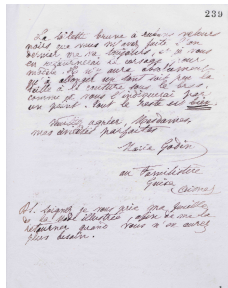 239
La toilette brune à rubans velours
noirs que vous m'avez faite l'an
dernier me va toujours, et je vous
en retournerai le corsage pour
modèle. Il n'y aura absolument
qu'à allonger un tant soit peu la
taille à la couture sous le bras
comme je vous l'indiquerai par
un point. Tout le reste est bien.
Veuillez agréer, Mesdames,
mes civilités parfaites
Marie Godin
au Familistère
Guise
(Aisne)
P.S. Soignez je vous prie ma feuille
de la mode illustrée, afin de me la
retourner quand vous n'en aurez
plus besoin.